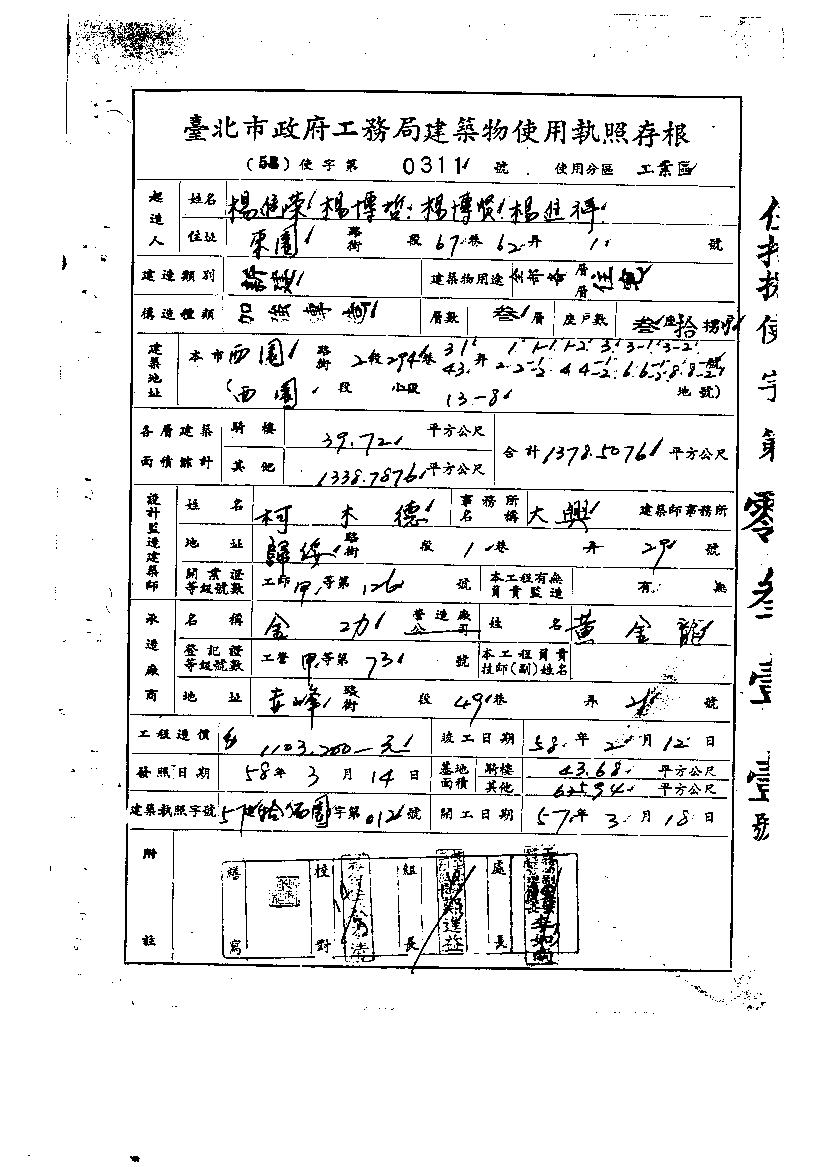 臺北市政府工務局建築物使用執照存根
(58) 使字第 0311 號 使用分區 工業區
起造人 姓名 楊 楊博哲 楊博 楊
住址 東園 路街 段 67 巷 62 弄 1 號
建造類別 新建 建築物用途 層層 住宅
構造種類 加強專造 層數 叁層 座戶數 叁座拾捌戶
建築地址 本市 西園 路街 2段 294巷 31 43 弄 號
(西園 段 小段 13-8 地號)
各層建築面積總計 騎樓 39.72 平方公尺
其他 1338.7876 平方公尺 合計 1378.5076 平方公尺
設計監造建築師 姓名 柯木德 事務所名稱 大興 建築師事務所
地址 歸綏 路街 段 1 巷 弄 29 號
開業證等級號數 工師 甲等第 126 號 本工程有無負責監造 有 無
承造廠商 名稱 金功 營造廠公司 姓名 黃金龍
登記證等級號數 工營 甲等第 73 號 本工程負責技師(副)姓名
地址 赤峰 路街 段 49 巷 弄 號
工程造價 1103,200元 竣工日期 58年 2月 12日
發照日期 58年 3月 14日 基地面積 騎樓 43.68 平方公尺
其他 625.94 平方公尺
建築執照字號 57 字第 012 號 開工日期 57年 3月 18日
附註 繕寫 校對 組長 處長
使字第零叁壹壹號